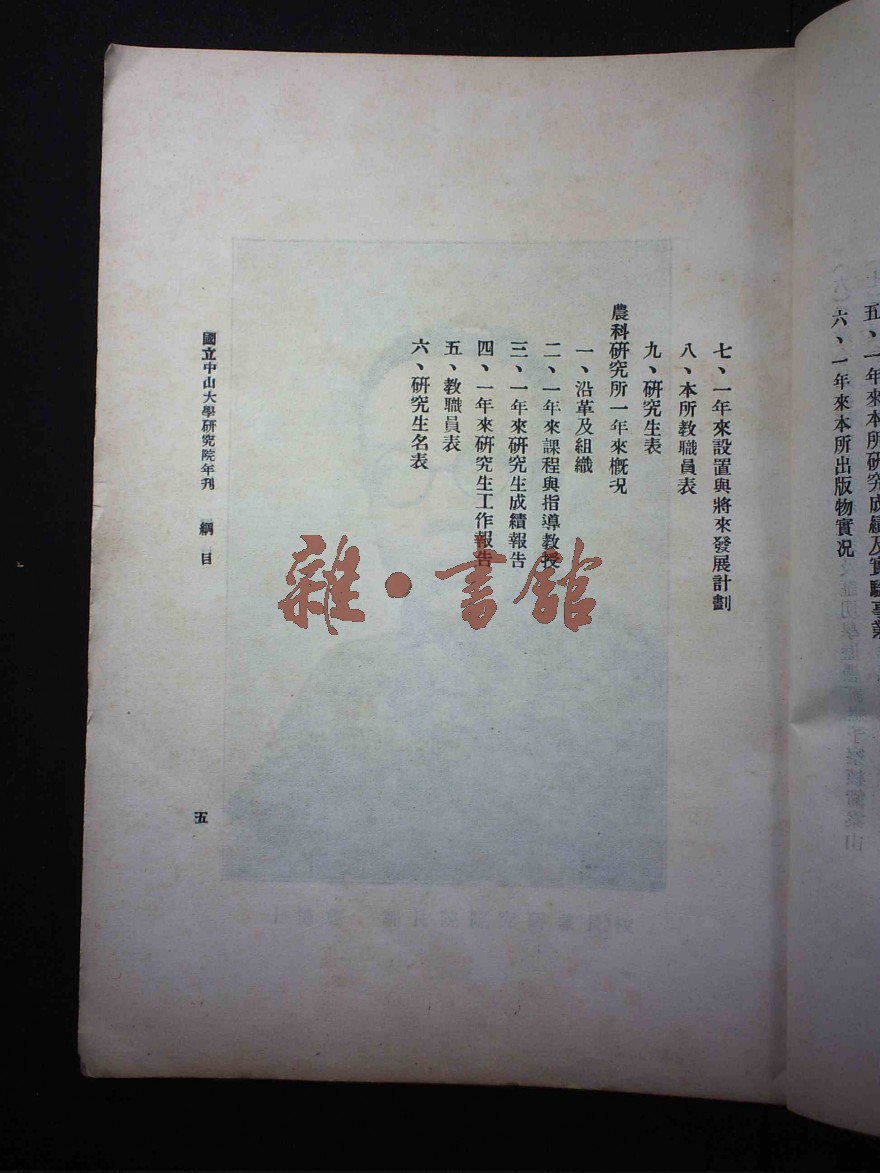 五、一年來本所研究成績及實驗事業
六、一年來本所出版物實况
七、一年來設置與將來發展計劃
八、本所教職員表
九、研究生表
農科研究所一年來概况
一、沿革及組織
二、一年來課程與指導教授
三、一年來研究生成績報告
四、一年來研究生工作報告
五、教職員表
六、研究生名表
國立中山大學研究院年刊 綱目
五
雜·書館